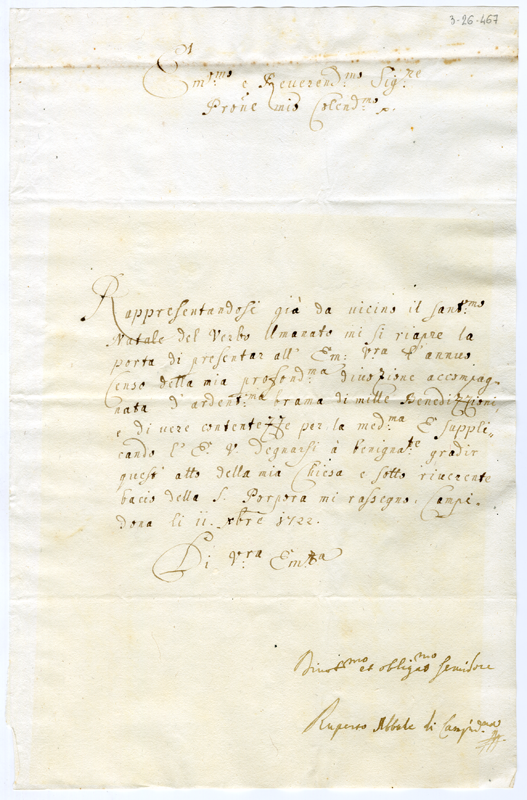 3-26-467
Em.mo e Reverend.mo Sig.re
Prōne mio Colend.mo
Rappresentandosi già da vicino il sant.mo
Natale del Verbo Umanato mi si riapre la
porta di presentar all' Em: Vra l'annuo
Censo della mia profond.ma divozione accompag-
nata d'ardent.ma brama di mille Benedizzioni,
e di vere contentezze per la med.ma E suppli-
cando l'E. V. degnarsi à benignate gradir
quest' atto della mia Chiesa e sotto riverente
bacio della S. Porpora mi rassegno. Campi-
dona li 11. Xbre 1722.
Di V.ra Em.za
Divot.mo et obligat.mo Servidore
Ruperto Abbate di Campid.na